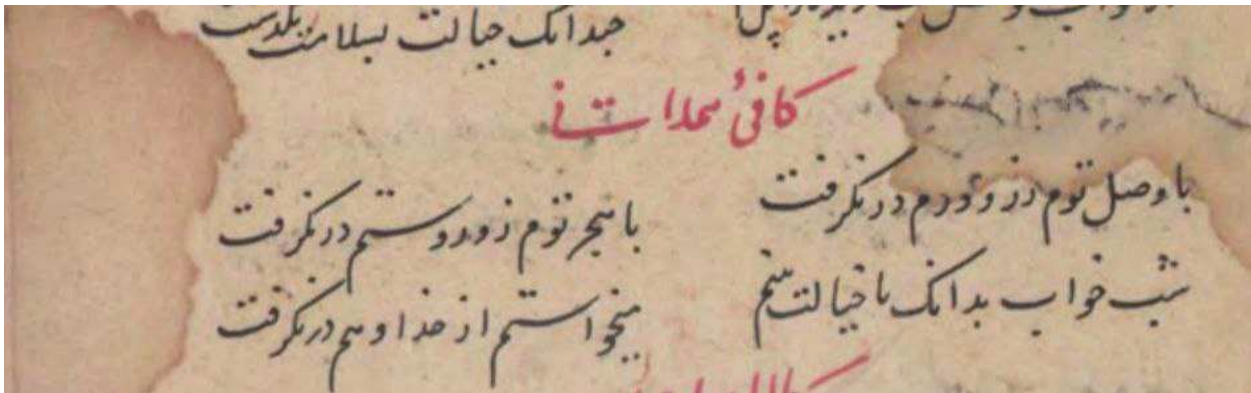 چندانک خیالت بسلامت بگذشت
کافیٔ همدانی
با وصل توم زر و درم درنگرفت
با هجر توم زور و ستم درنگرفت
شب خواب بدانک تا خیالت بینم
میخواستم از خدا و هم درنگرفت